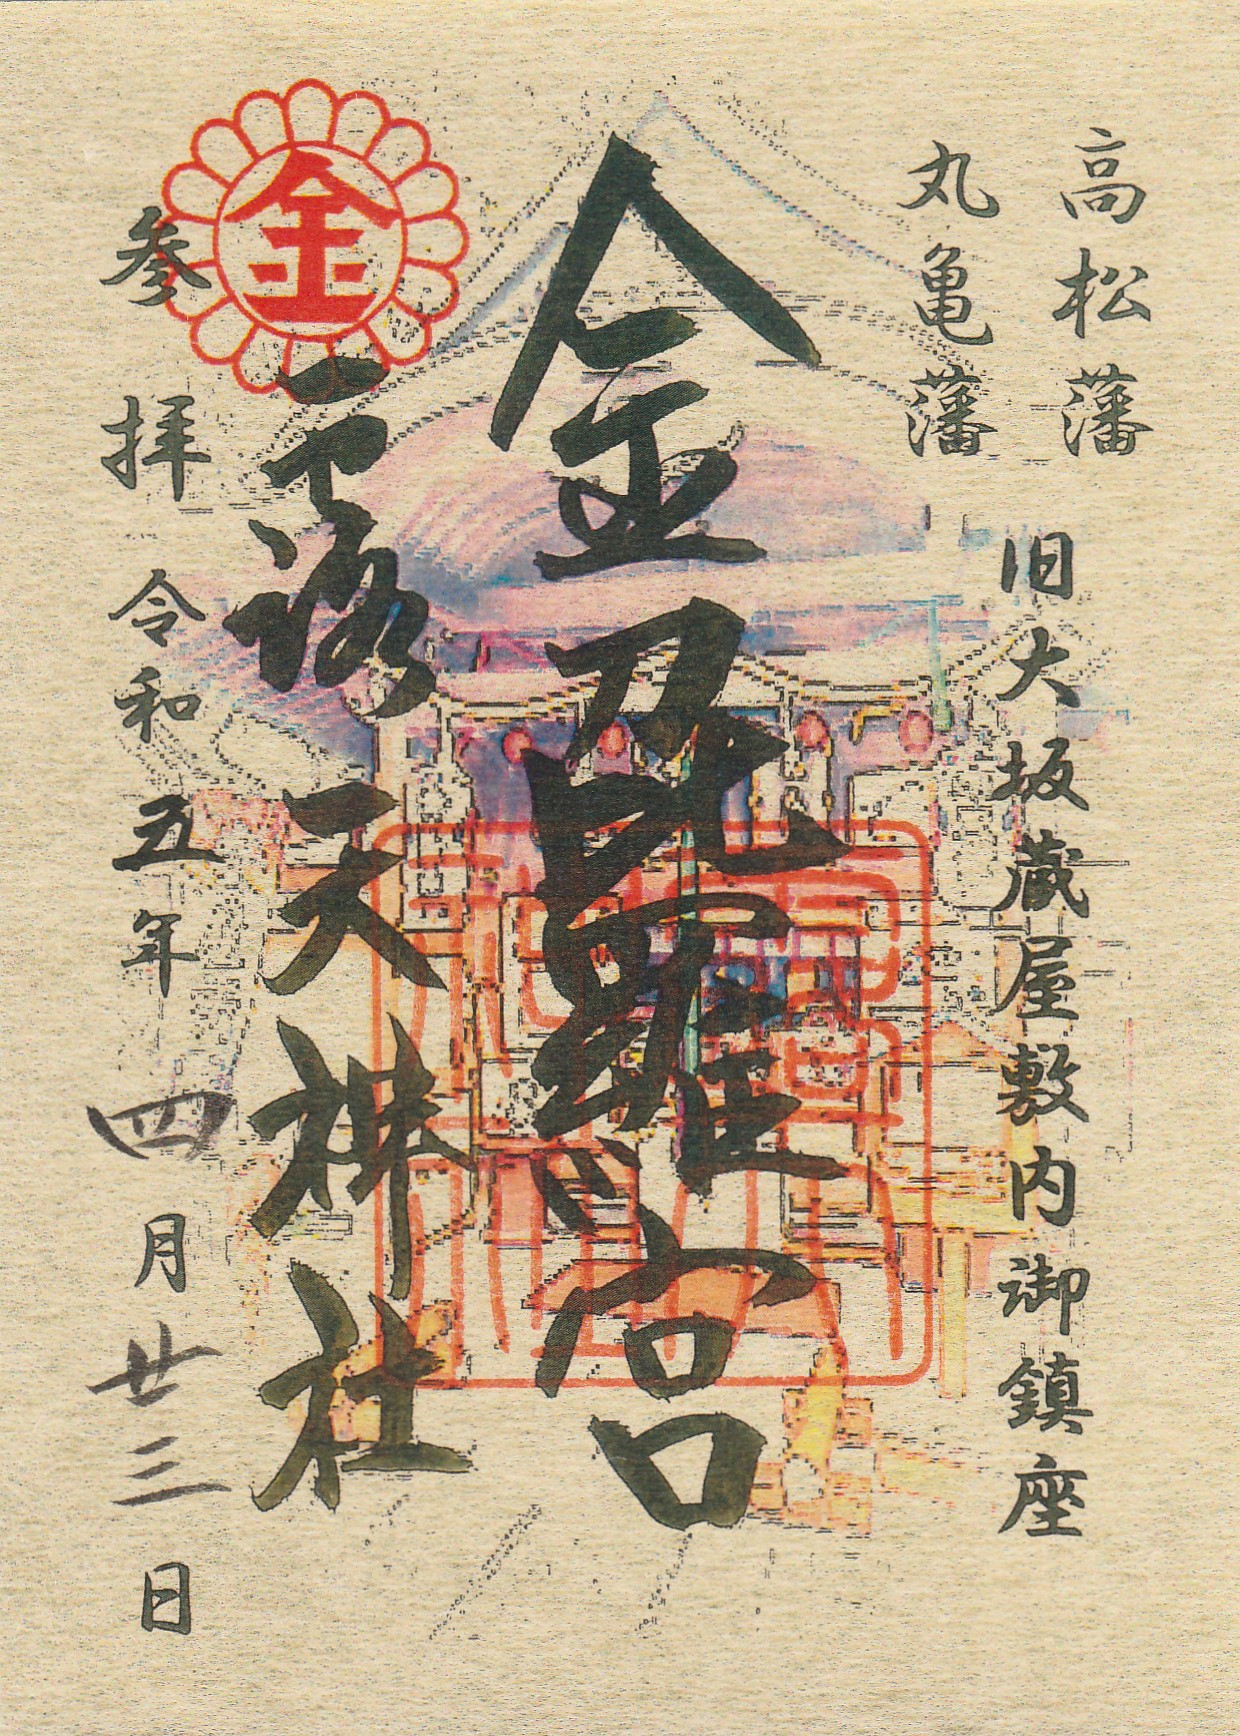 高松藩
丸亀藩
旧大坂蔵屋敷内御鎮座
金刀比羅宮
露天神社
金
参拝 令和五年四月廿三日